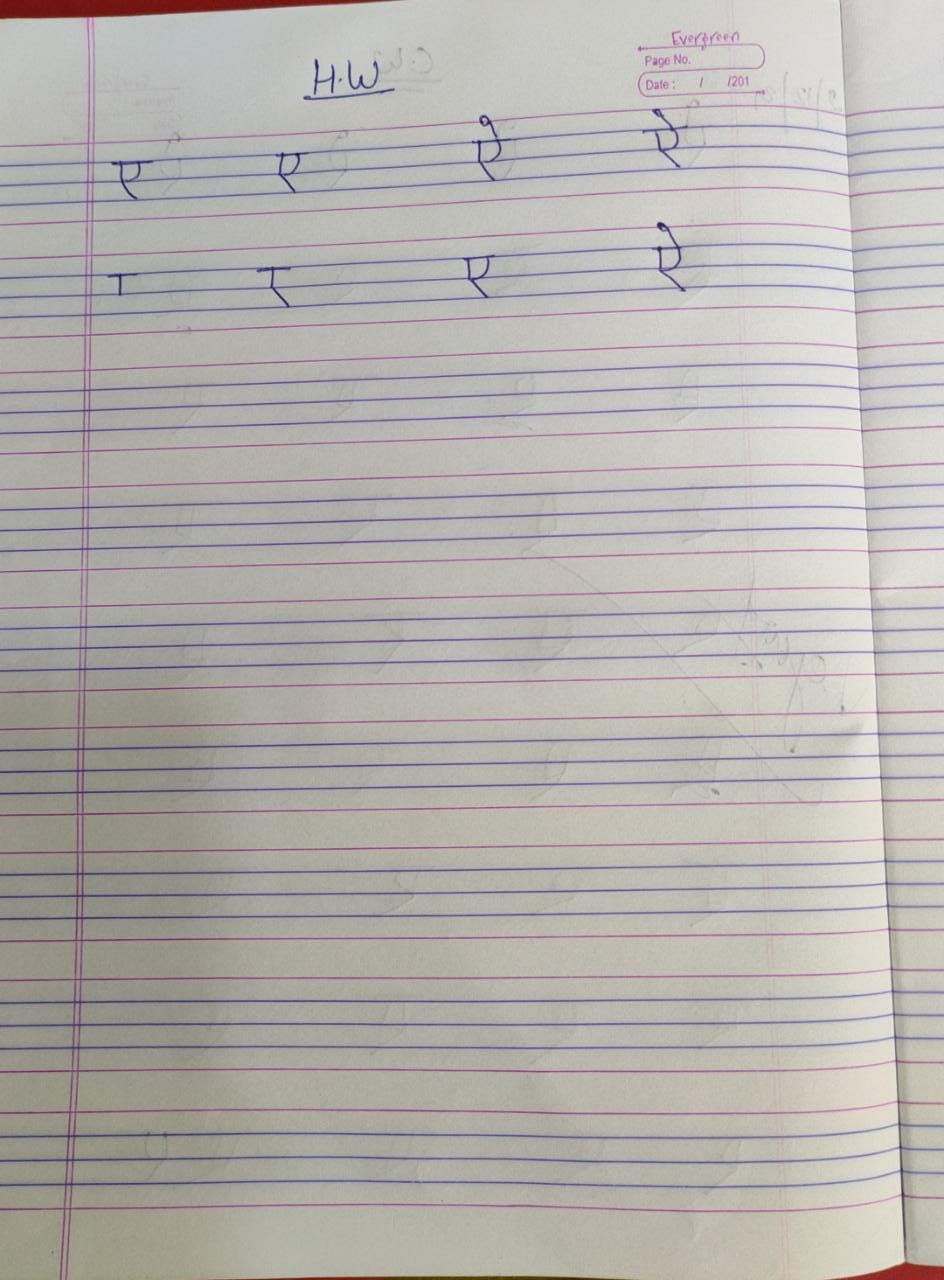 Evergreen
Page No.
Date : / /201
H.W
ए ए ऐ ऐ
ए ऐ